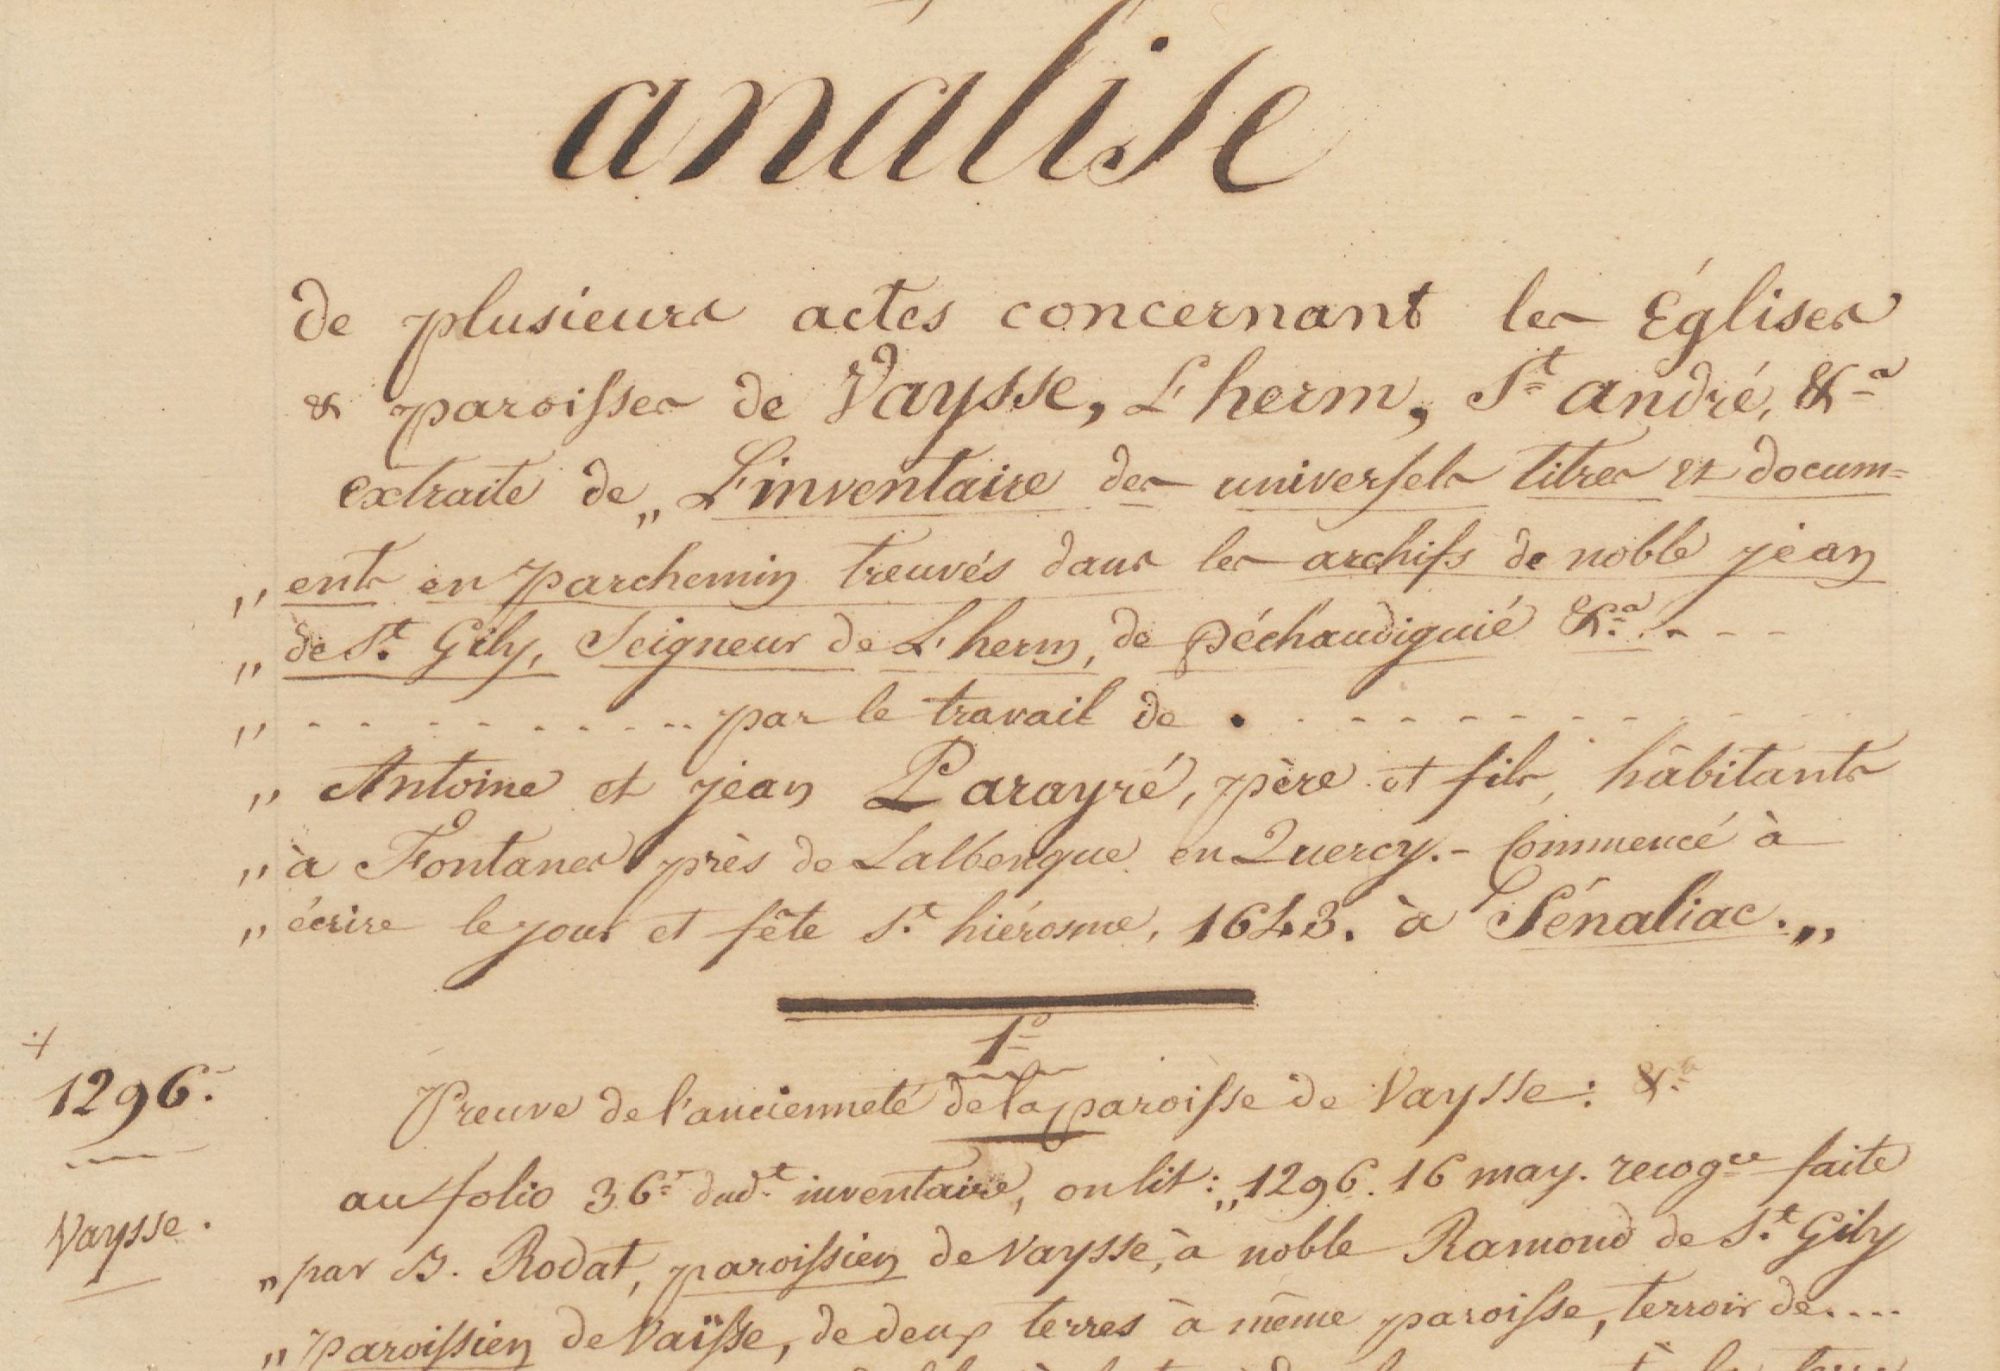 analise
de plusieurs actes concernant les Églises
& paroisses de Vaysse, L'herm, St andré, &a
extraite de „ L'inventaire des universels titres et docum=
„ ents en parchemin treuvés dans les archifs de noble jean
„ de St. Gily, Seigneur de L'herm, de péchaudiguié &a. - - -
„ - - - - - - - - - - par le travail de . - - - - - - - - - -
„ Antoine et jean Parayré, père et fils, hâbitants
„ à Fontanes près de Lalbenque en Quercy. - Commencé à
„ écrire le jour et fête St. hiérosme, 1643. à Sénaliac. „
1°
1296.
Preuve de l'ancienneté de la paroisse de Vaysse : &a
au folio 36 dudt. inventaire, on lit : „ 1296. 16 may. recogce faite
Vaysse.
„ par B. Rodat, paroissien de Vaysse, à noble Ramond de St. Gily
„ paroissien de Vaïsse, de deux terres à même paroisse, terroir de ....